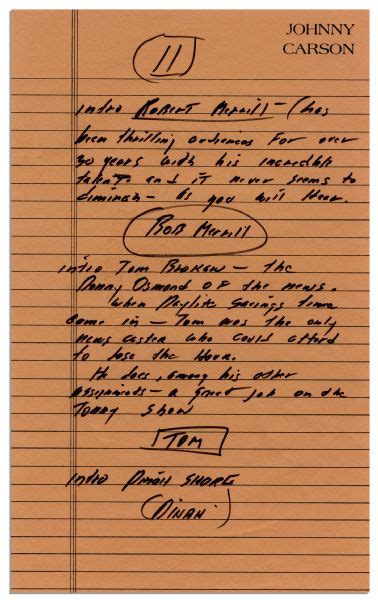 JOHNNY
CARSON
11
intro Robert Merrill - (has
been thrilling audiences For over
30 years with his incredible
talent and it never seems to
diminish - As you will Hear.
Bob Merrill
intro Tom Brokaw - the
Donny Osmond of the news.
When Daylite Savings time
came in - Tom was the only
news caster who could afford
to lose the Hour.
He does, among his other
assignments - a great job on the
Today Show
TOM
intro Dinah SHORE
DINAH